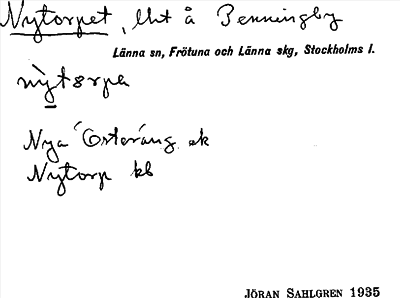 Nytorpet, lht å Penningby
Länna sn, Frötuna och Länna skg, Stockholms l.
nỳtorpa
Nya Österäng ek
Nytorp kb
JÖRAN SAHLGREN 1935